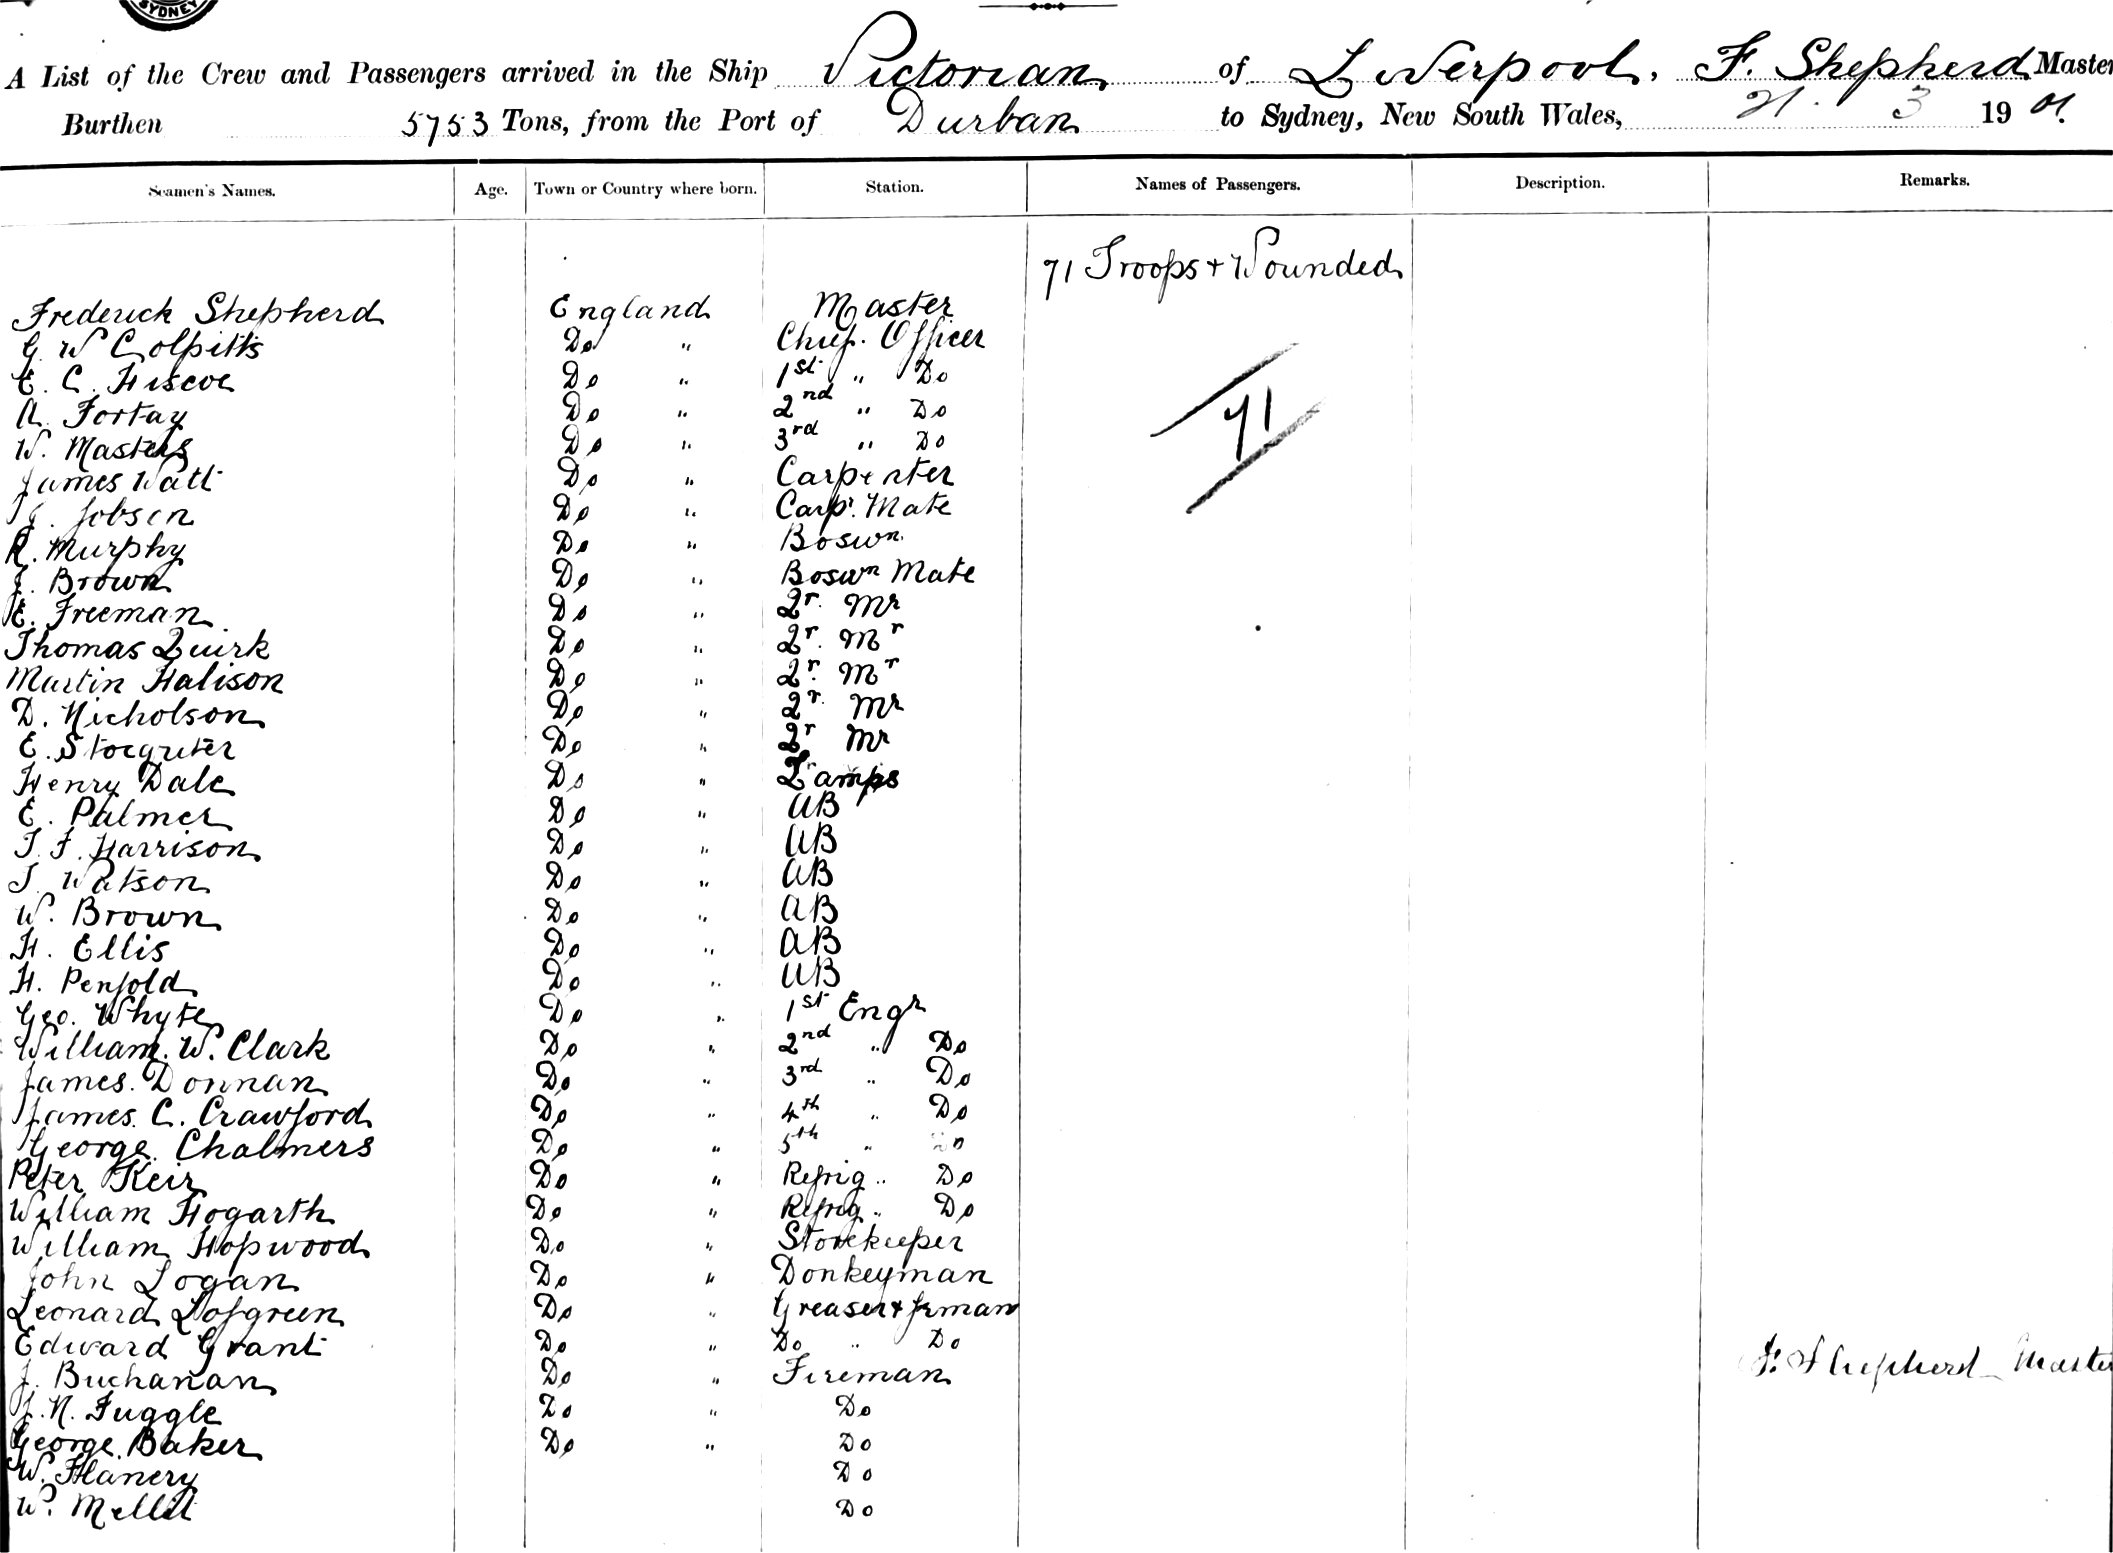 SYDNEY
A List of the Crew and Passengers arrived in the Ship Victorian of Liverpool. F. Shepherd Master
Burthen 5753 Tons, from the Port of Durban to Sydney, New South Wales, 21. 3 1901.
Seamen's Names. Age. Town or Country where born. Station. Names of Passengers. Description. Remarks.
71 Troops & Wounded
Frederick Shepherd England Master
G. W Colpitts Do " Chief. Officer
E. C. Fiscoe Do " 1st " Do
A. Fortay Do " 2nd " Do
71
W. Masters Do " 3rd " Do
James Watt Do " Carpenter
J. Jobson Do " Carpr. Mate
R. Murphy Do " Boswn.
J. Brown Do " Boswn Mate
E. Freeman Do " Qr. Mr
Thomas Quirk Do " Qr. Mr
Martin Halison Do " Qr. Mr
D. Nicholson Do " Qr. Mr
E. Do " Qr Mr
Henry Dale Do " Lamps
E. Palmer Do " AB
T. F. Harrison Do " AB
T. Watson Do " AB
W. Brown Do " AB
H. Ellis Do " AB
H. Penfold Do " AB
Geo. Whyte Do " 1st Engr
William. W. Clark Do " 2nd " Do
James. Donnan Do " 3rd " Do
James. C. Crawford Do " 4th " Do
George. Chalmers Do " 5th " Do
Peter Keir Do " Refrig " Do
William Hogarth Do " Refrig " Do
William Hopwood Do " Storekeeper
John Logan Do " Donkeyman
Leonard Lofgreen Do " Greaser & frman
Edward Grant Do " Do " Do
F. Shepherd Master
J. Buchanan Do " Fireman
J. N. Fuggle Do " Do
George. Baker Do " Do
W. Flanery Do
W. Mellit Do